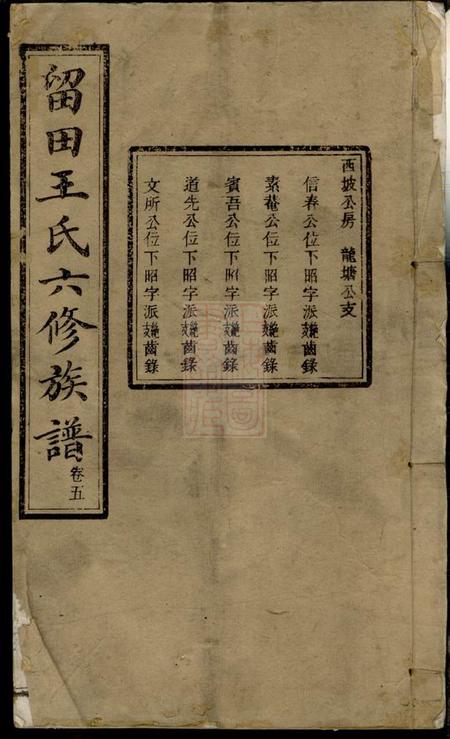 留田王氏六修族譜
卷五
西坡公房 龍塘公支
信春公位下昭字派齒錄
素菴公位下昭字派齒錄
賓吾公位下昭字派齒錄
道先公位下昭字派齒錄
文所公位下昭字派齒錄